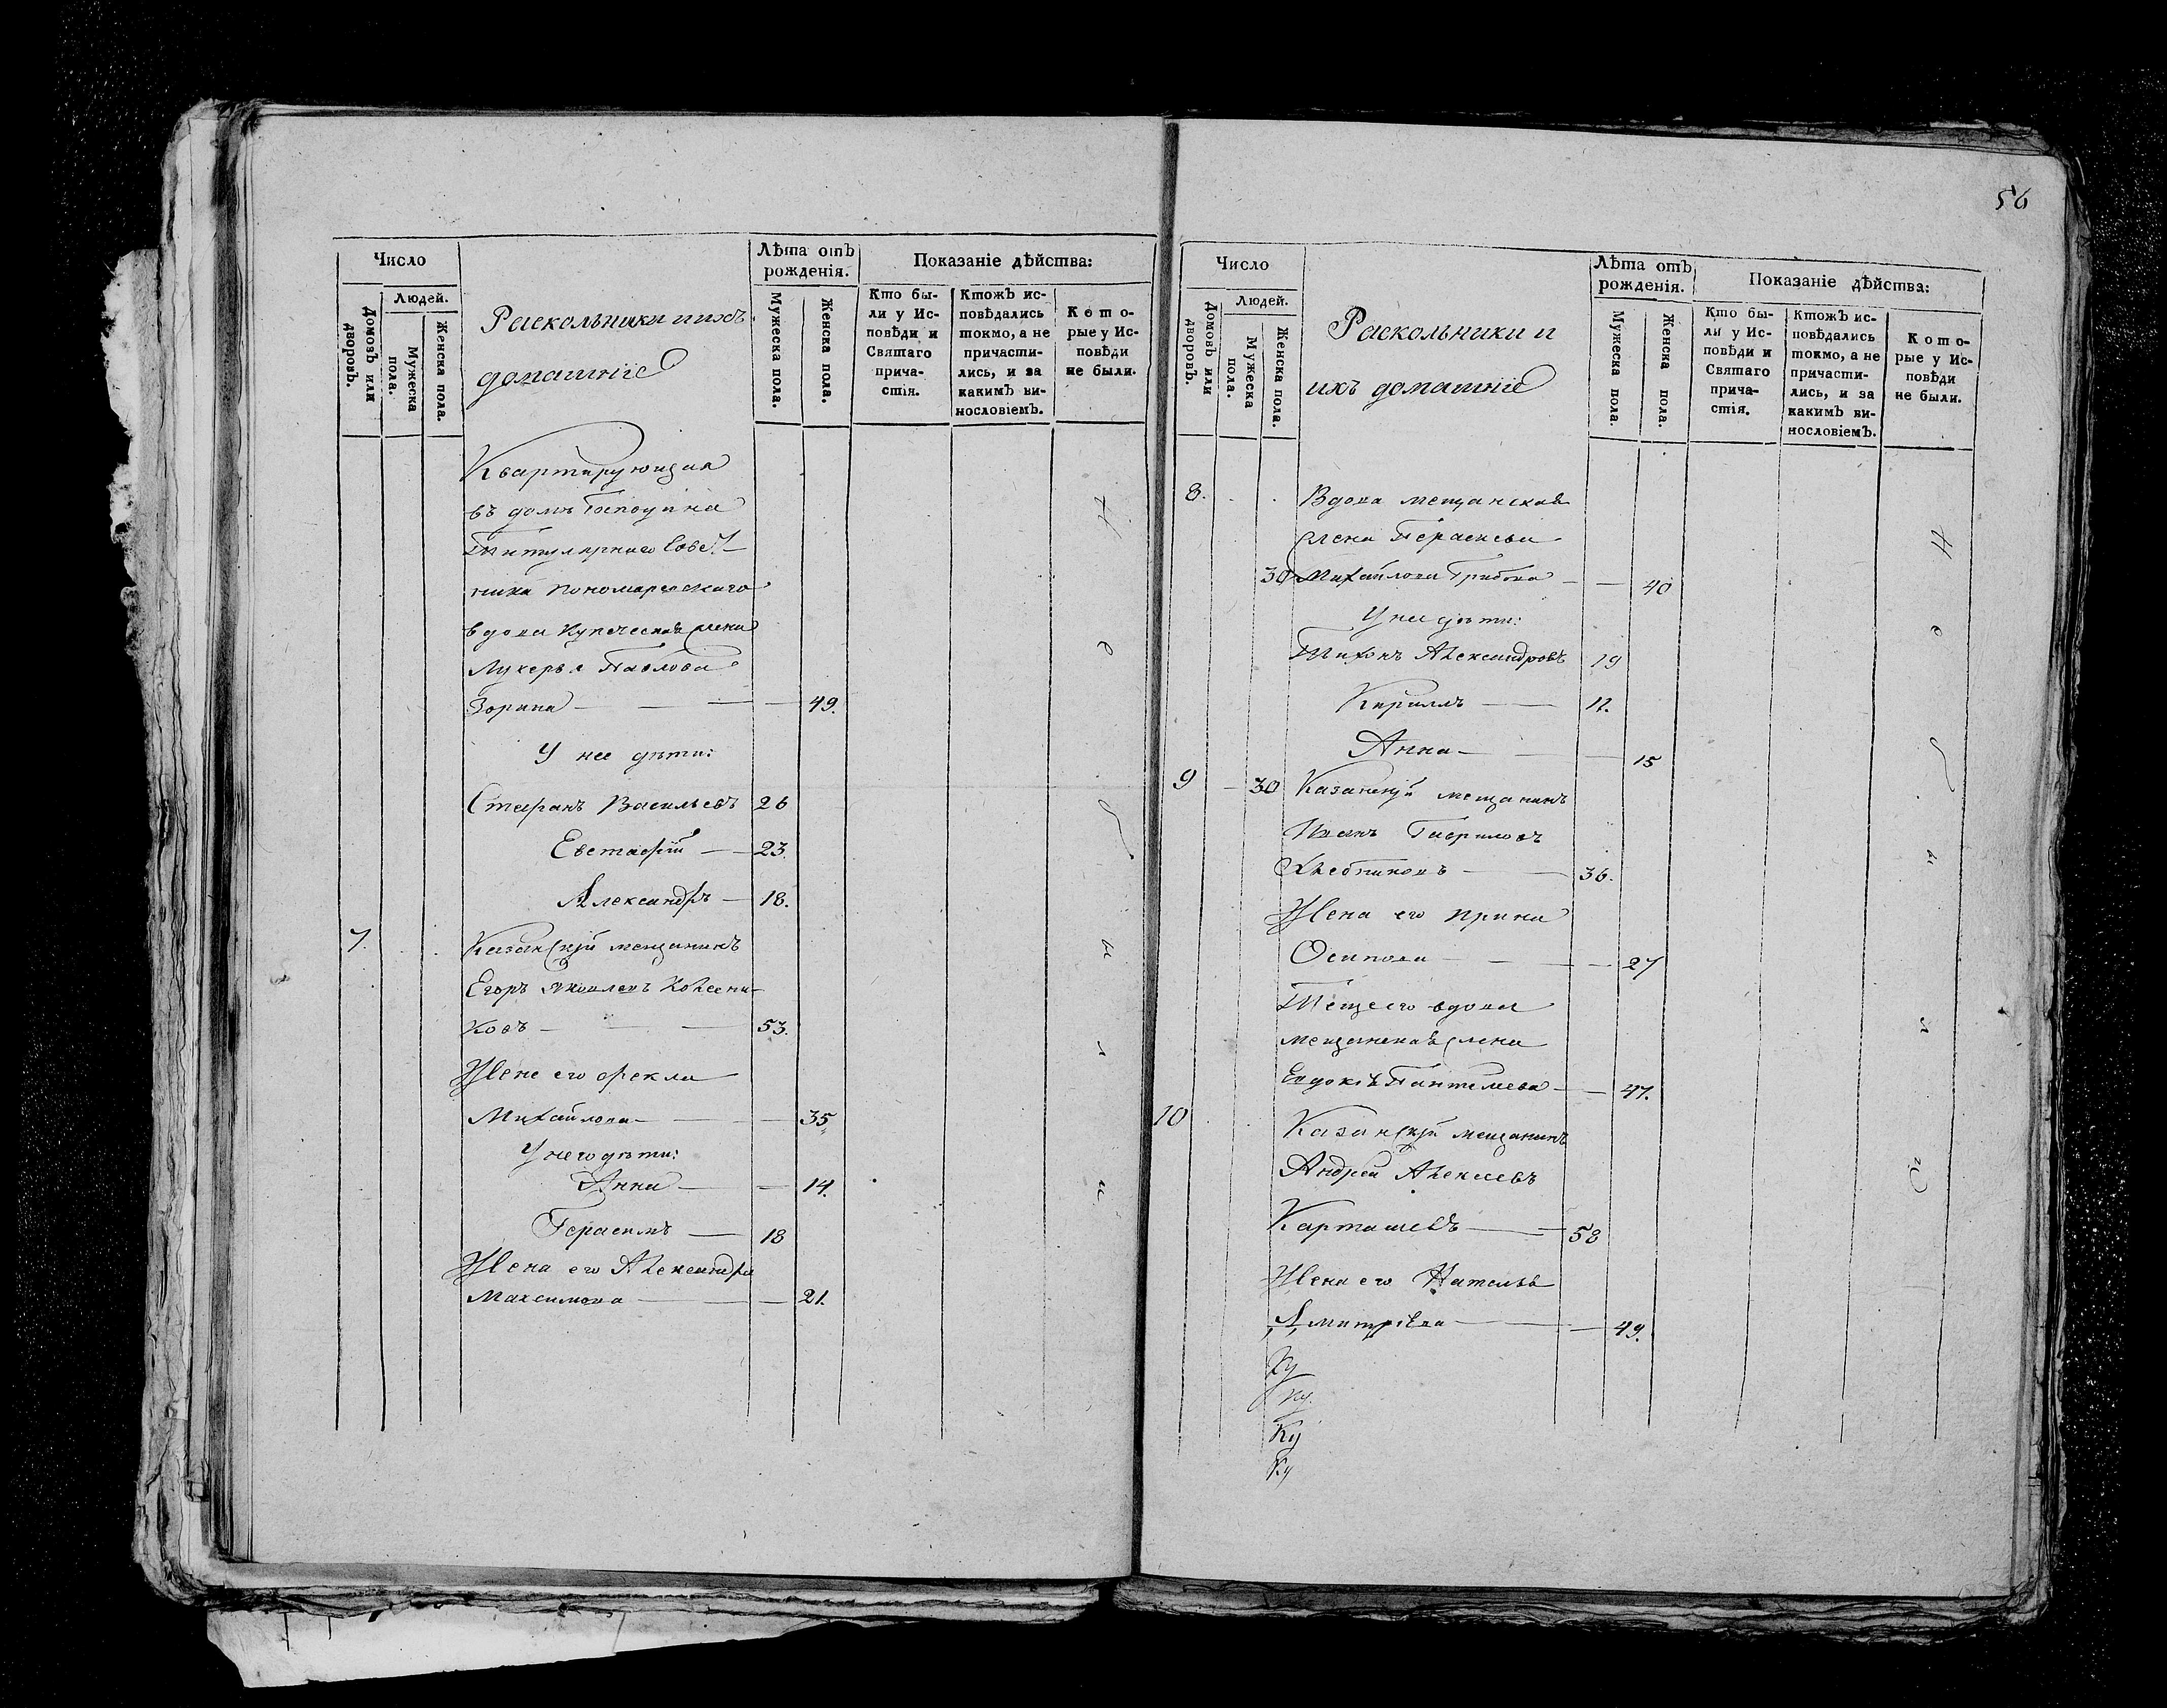 Число
Людей.
Домовъ или дворовъ.
Мужеска пола.
Женска пола.
Раскольники и ихъ
домашніе
Лѣта отъ рожденія.
Мужеска пола.
Женска пола.
Показаніе дѣйства:
Кто бы-
ли у Ис-
повѣди и
Святаго
прича-
стія.
Ктожъ ис-
повѣдались
токмо, а не
причасти-
лись, и за
какимъ ви-
нословіемъ.
Кото-
рые у Ис-
повѣди
не были.
Квартирующая
въ домѣ Господина
Титулярнаго Совѣт-
ника Пономаревскаго
вдова купеческая жена
Лукерья Павлова
Зорина — — — 49.
У нее дѣти:
Стефанъ Васильевъ 26
Евстафій — 23.
Александръ — 18.
7. Казанскій мещанинъ
Егоръ Яковлевъ Колесни-
ковъ — — 53.
Жена его Фекла
Михайлова — — 35
У него дѣти:
Анна — — 14.
Герасимъ — 18
Жена его Александра
Максимова — — 21.
Н
е
б
ы
л
и
56
Число
Людей.
Домовъ или дворовъ.
Мужеска пола.
Женска пола.
Раскольники и
ихъ домашніе
Лѣта отъ
рожденія.
Мужеска пола.
Женска пола.
Показаніе дѣйства:
Кто бы-
ли у Ис-
повѣди и
Святаго
прича-
стія.
Ктожъ ис-
повѣдались
токмо, а не
причасти-
лись, и за
какимъ ви-
нословіемъ.
Кото-
рые у Ис-
повѣди
не были.
8. Вдова мещанская
жена Парасковья
30 Михайлова Грибова — — 40
У нее дѣти:
Тихонъ Александровъ 19
Кириллъ — 12.
Анна — — 15
9 30 Казанскій мещанинъ
Иванъ Гавриловъ
Хлебниковъ — 36.
Жена его Ирина
Осипова — — 27
Теща его вдова
мещанская жена
Евдокія Пантелеева — 47.
10 Казанскій мещанинъ
Андрей Алексеевъ
Карташевъ — 58
Жена его Наталья
Дмитріева — — 49.
Ку
Ку
Ку
Ку
Н
е
б
ы
л
и